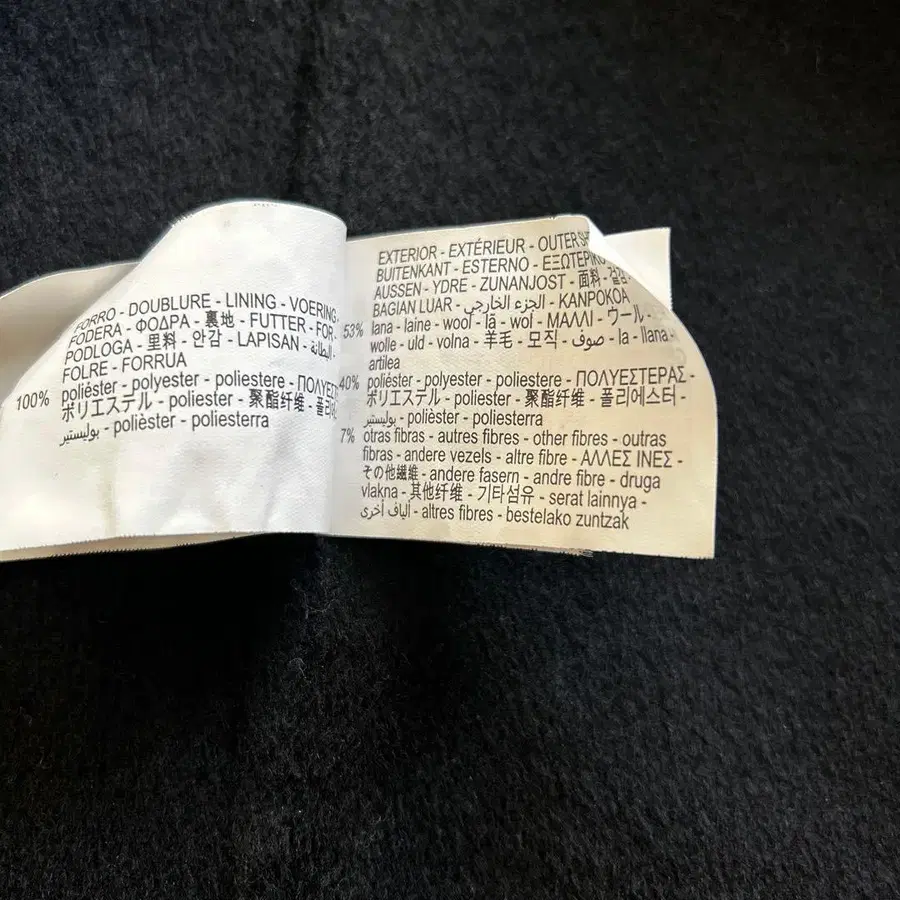 FORRO - DOUBLURE - LINING - VOERING
FODERA - ΦΟΔΡΑ - 裏地 - FUTTER - FOR
PODLOGA - 里料 - 안감 - LAPISAN - البطانة
FOLRE - FORRUA
100% poliéster - polyester - poliestere - ΠΟΛΥΕΣΤ
ポリエステル - poliester - 聚酯纤维 - 폴리에
بوليستير - polièster - poliesterra
EXTERIOR - EXTÉRIEUR - OUTER SH
BUITENKANT - ESTERNO - ΕΞΩΤΕΡΙΚΟ
AUSSEN - YDRE - ZUNANJOST - 面料 - 겉감
BAGIAN LUAR - الجزء الخارجي - KANPOKOA
53% lana - laine - wool - lã - wol - ΜΑΛΛΙ - ウール -
wolle - uld - volna - 羊毛 - 모직 - صوف - la - llana -
artilea
40% poliéster - polyester - poliestere - ΠΟΛΥΕΣΤΕΡΑΣ -
ポリエステル - poliester - 聚酯纤维 - 폴리에스터 -
بوليستير - polièster - poliesterra
7% otras fibras - autres fibres - other fibres - outras
fibras - andere vezels - altre fibre - ΑΛΛΕΣ ΙΝΕΣ -
その他繊維 - andere fasern - andre fibre - druga
vlakna - 其他纤维 - 기타섬유 - serat lainnya -
ألياف أخرى - altres fibres - bestelako zuntzak